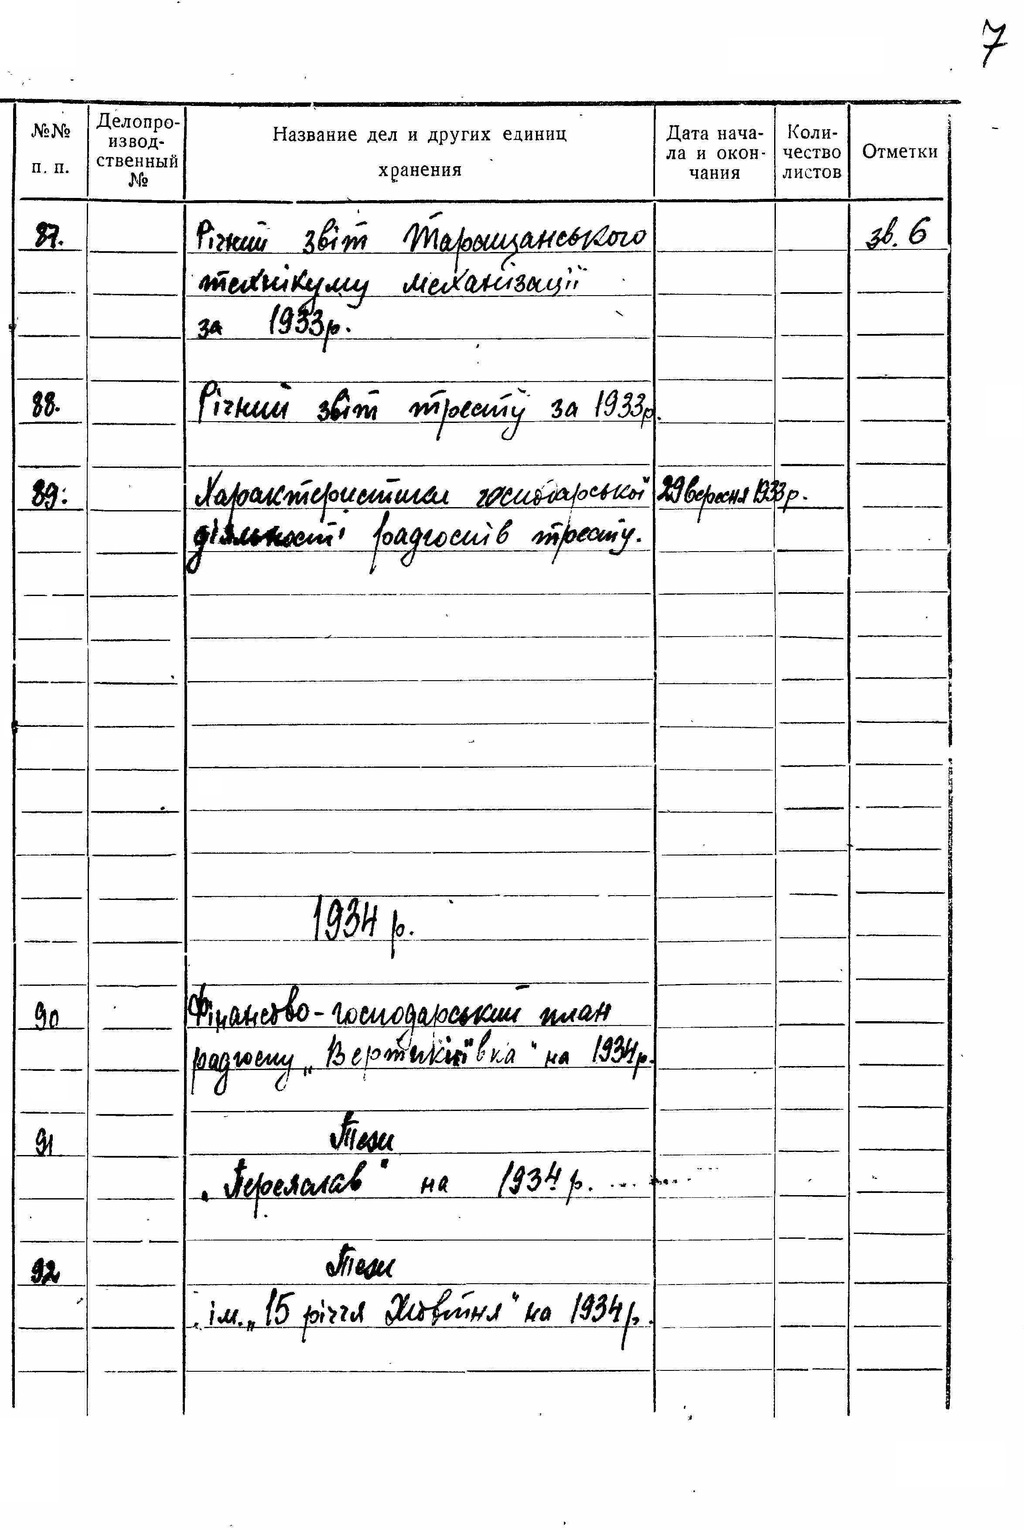 7
№№ п. п.
Делопроизводственный №
Название дел и других единиц хранения
Дата начала и окончания
Количество листов
Отметки
87. Річний звіт Таращанського зв. 6
технікуму механізації
за 1933р.
88. Річний звіт тресту за 1933р.
89. Характеристики господарської 29 вересня 1933 р.
діяльності радгоспів тресту.
1934 р.
90 Фінансово-господарський план
радгоспу „ " на 1934р.
91 Тези
„Переяслав" на 1934 р.
92 Тези
ім. „15 річчя Жовтня" на 1934р.